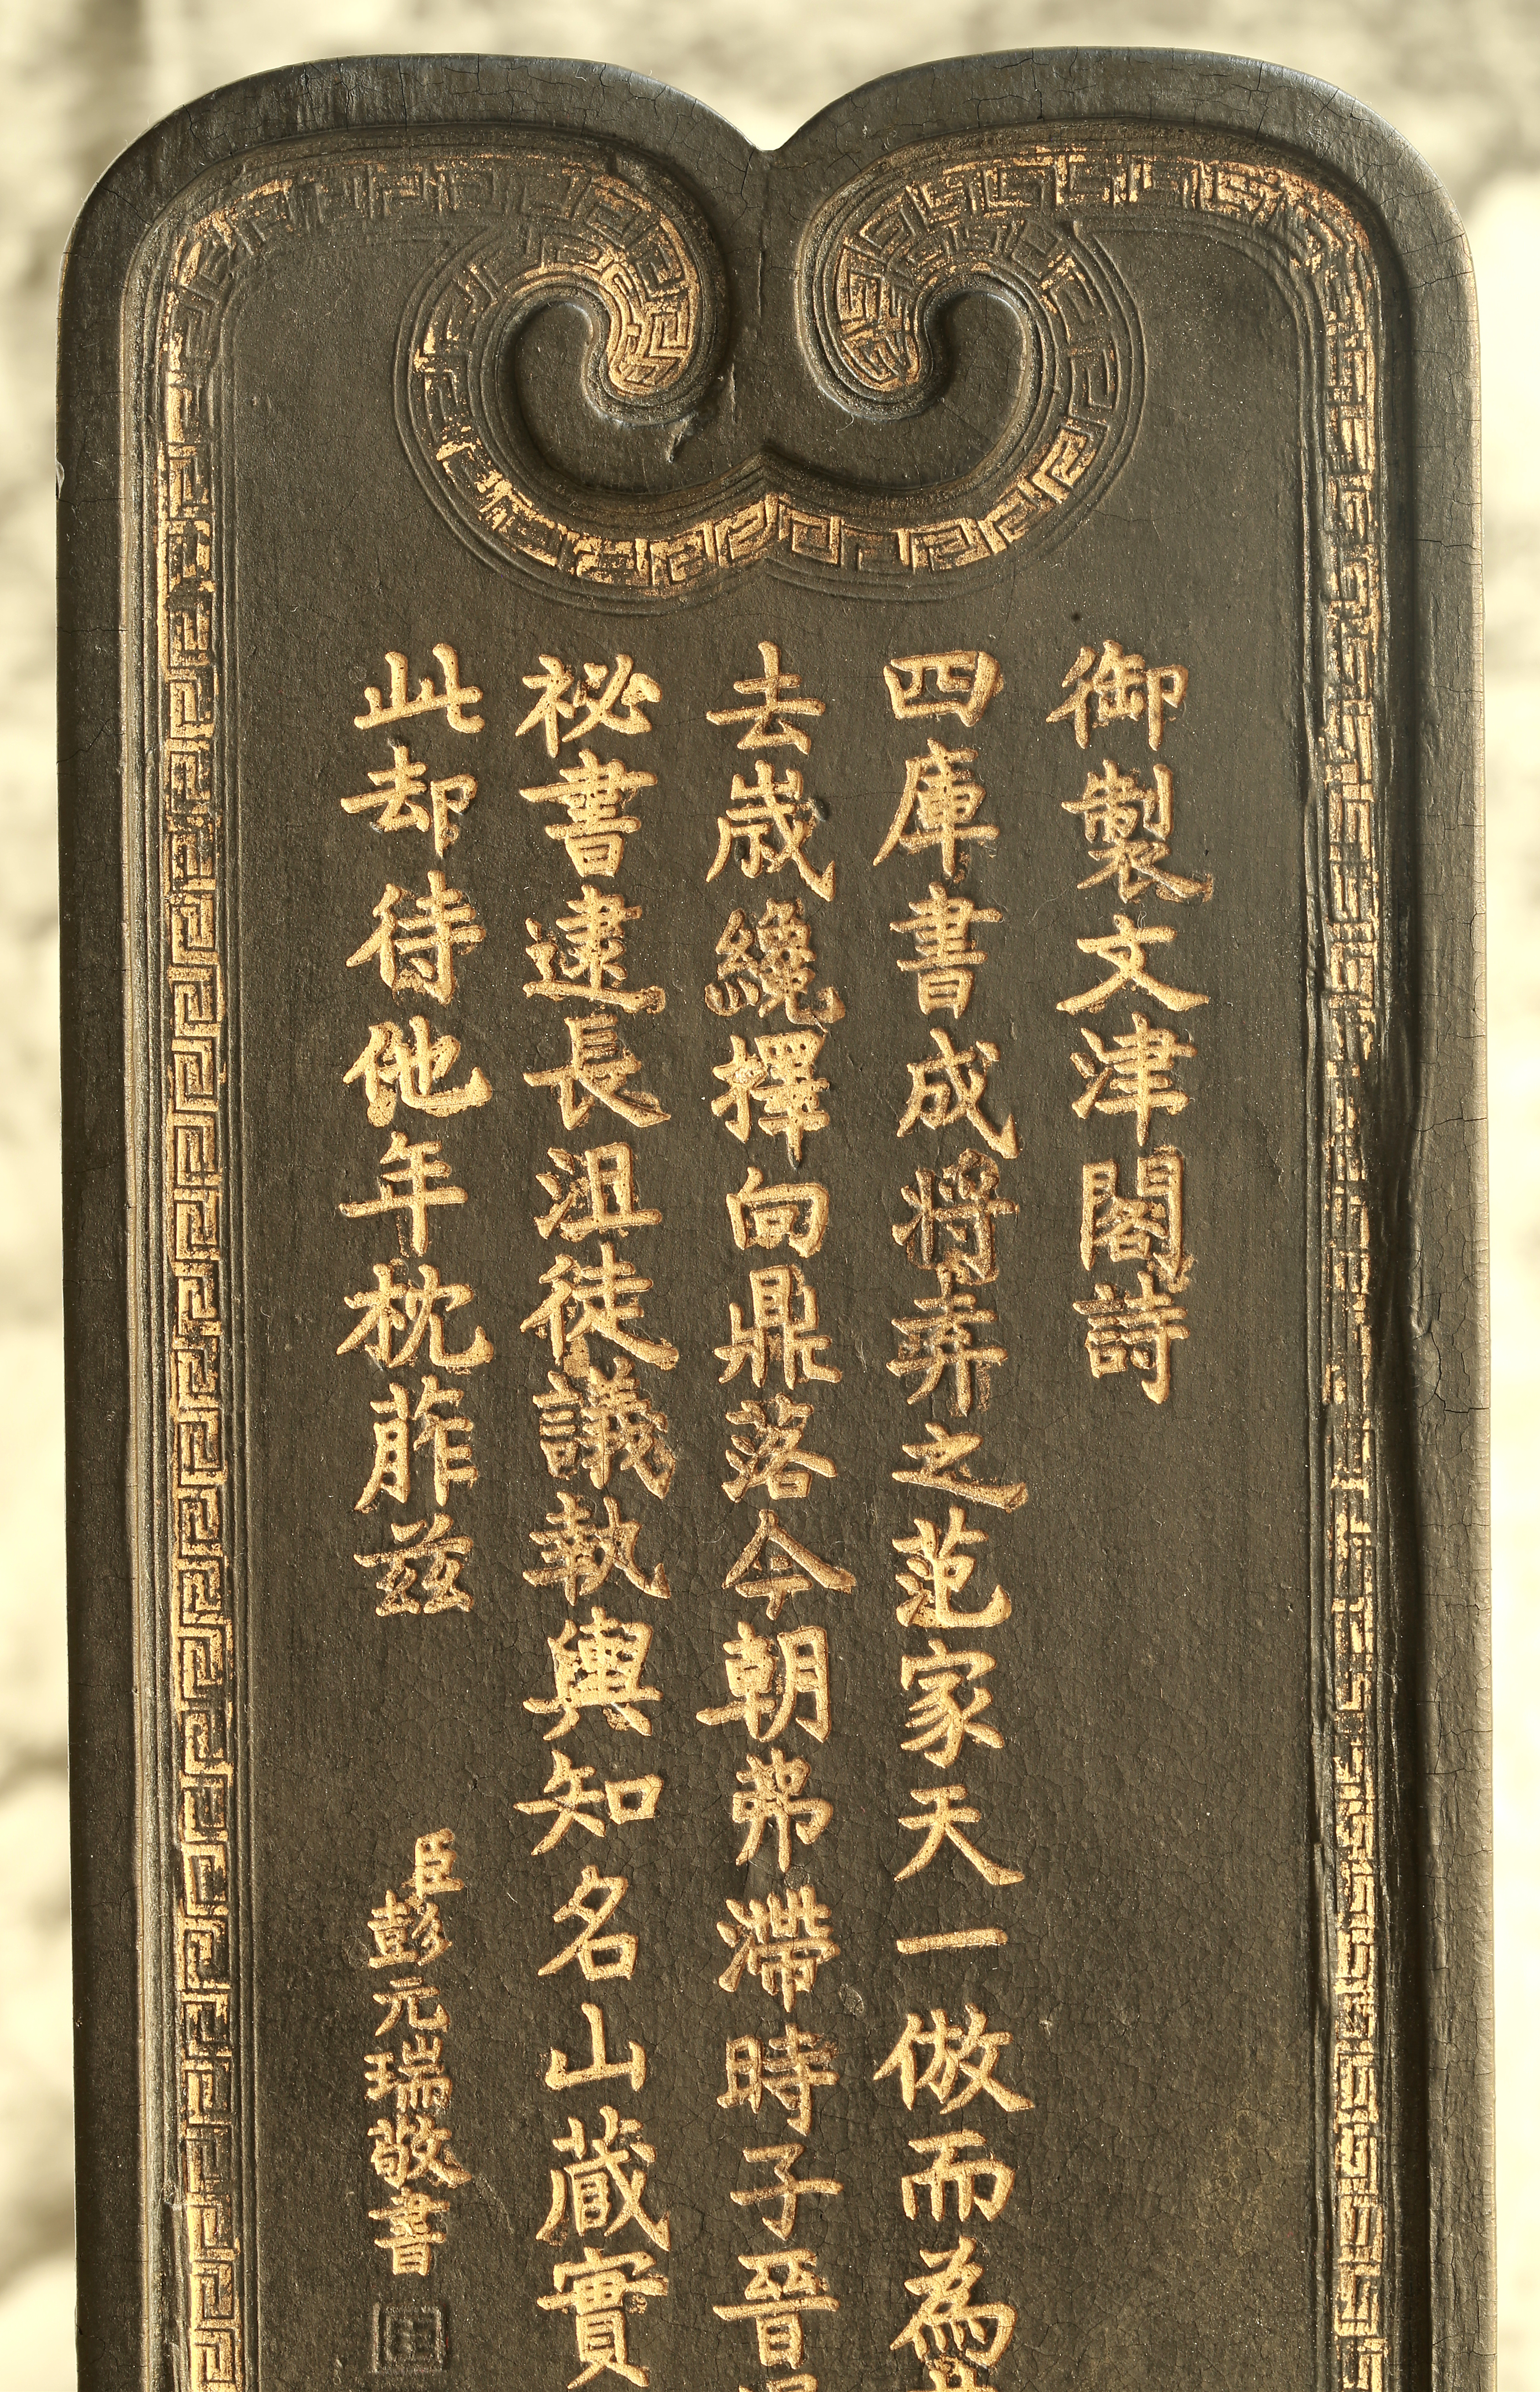 御製文津閣詩
四庫書成將弆之范家天一倣而為
去歲纔擇向鼎落今朝弗滯時子晉
祕書逮長沮徒議執輿知名山藏實
此却待他年枕葄兹
臣彭元瑞敬書